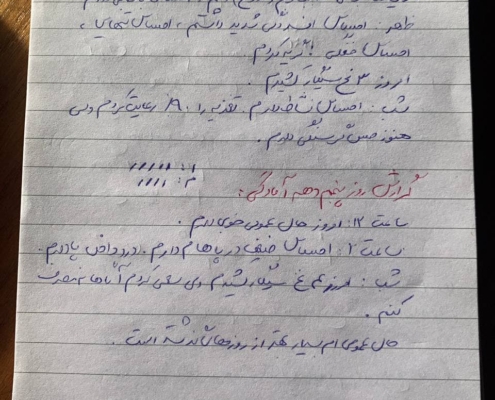 ظهر: احساس افسردگی شدید داشتم، احساس تنهایی،
احساس خفگی! گریه کردم.
امروز ۳ نخ سیگار کشیدم.
شب: احساس نشاط دارم. تغذیه را ۹۰٪ رعایت کردم ولی
هنوز حس گرسنگی دارم.
گزارش روز پنجم دهه آمادگی:
ساعت ۱۲: امروز حال عمومی خوبی دارم.
ساعت ۲: احساس ضعف در پاها دارم. درد داخل پا دارم.
شب: امروز هم نخ سیگار کشیدم ولی سعی کردم آنها را نصفه
کنم.
حال عمومی ام بسیار بهتر از روزهای گذشته است.